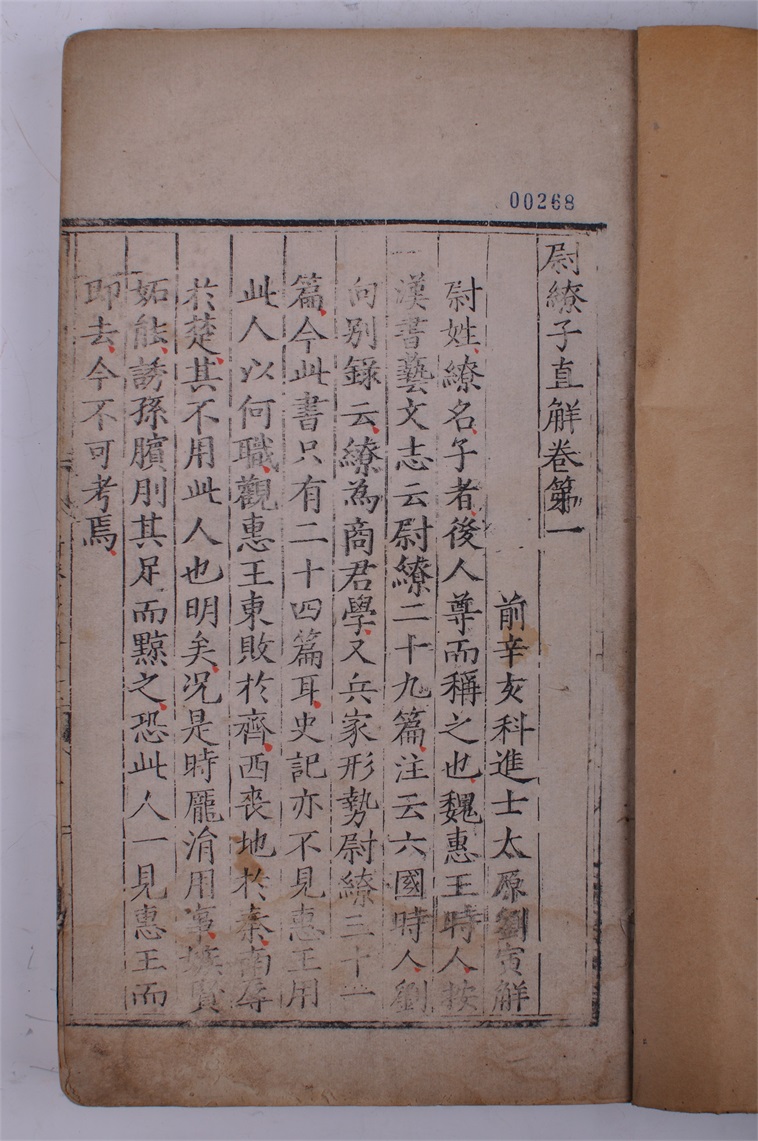 00268
尉繚子直解卷第一
前辛亥科進士太原劉寅解
尉姓繚名子者後人尊而稱之也魏惠王時人按
漢書藝文志云尉繚二十九篇注云六國時人劉
向別錄云繚為商君學又兵家形勢尉繚三十一
篇今此書只有二十四篇耳史記亦不見惠王用
此人以何職觀惠王東敗於齊西喪地於秦南辱
於楚其不用此人也明矣況是時龎涓用事嫉賢
妬能誘孫臏刖其足而黥之恐此人一見惠王而
即去今不可考焉